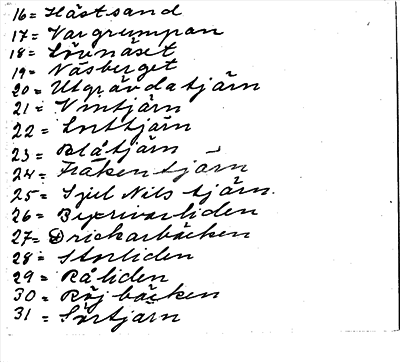 16 = Hästsand
17 = Vargrumpan
18 = Lövnäset
19 = Näsberget
20 = Utgrävdatjärn
21 = Vintjärn
22 = Lorttjärn
23 = Blåtjärn
24 = Fräkentjärn
25 = Spel Nils tjärn.
26 = liden
27 = Drickarbäcken
28 = Storliden
29 = Råliden
30 = Röjbäcken
31 = Sörtjärn